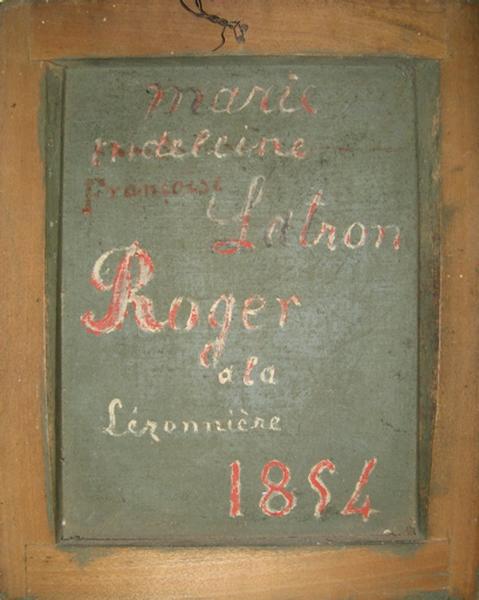 marie
madeleine
françoise
Latron
Roger
a la
Lézonnière
1854